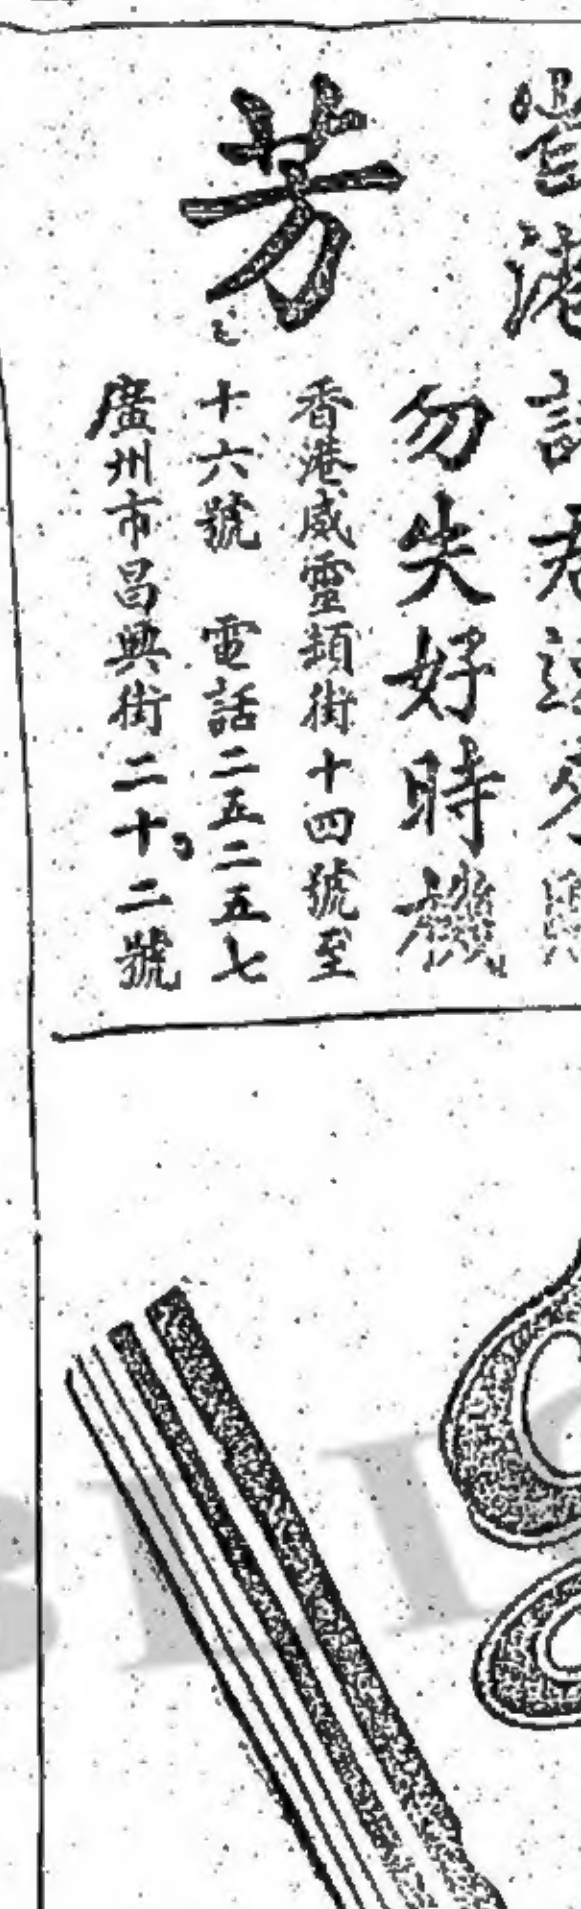 芳
勿失好時機
香港威靈頓街十四號至
十六號 電話二五二五七
廣州市昌興街二十二號
BLI